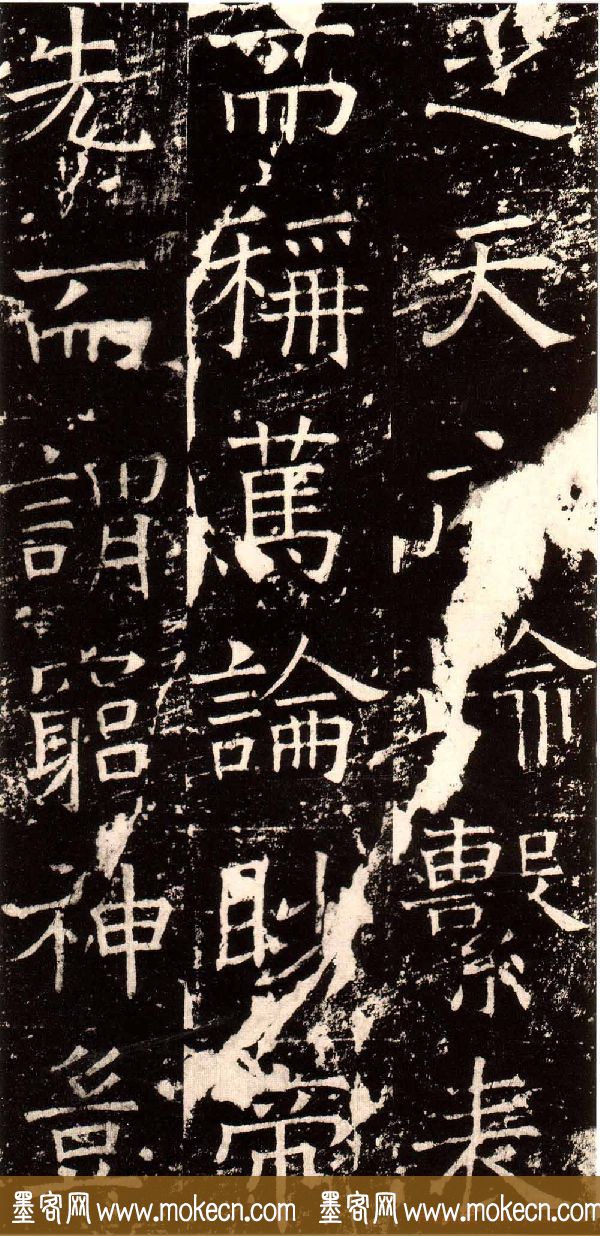 之天踰繫表
而稱篤論眇帝
先而謂窮神豈
墨客网 www.mokecn.com 墨客网 www.mokecn.com